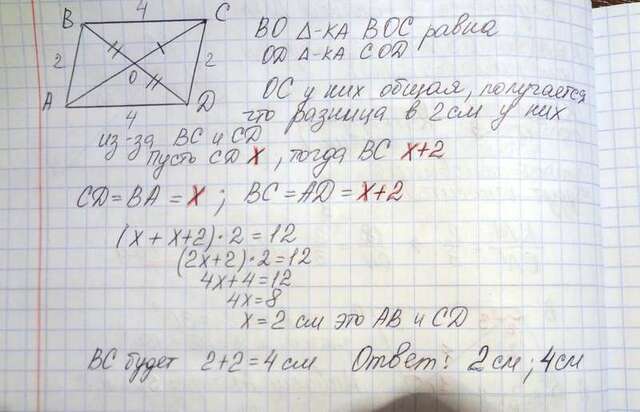 B 4 C
2 O 2
A 4 D
BO Δ-ка BOC равна
OD Δ-ка COD
OC у них общая, получается
что разница в 2см у них
из-за BC и CD
Пусть CD X, тогда BC X+2
CD = BA = X; BC = AD = X+2
(x + x+2)·2 = 12
(2x+2)·2 = 12
4x+4=12
4x=8
x = 2 см это AB и CD
BC будет 2+2=4см Ответ: 2см; 4см